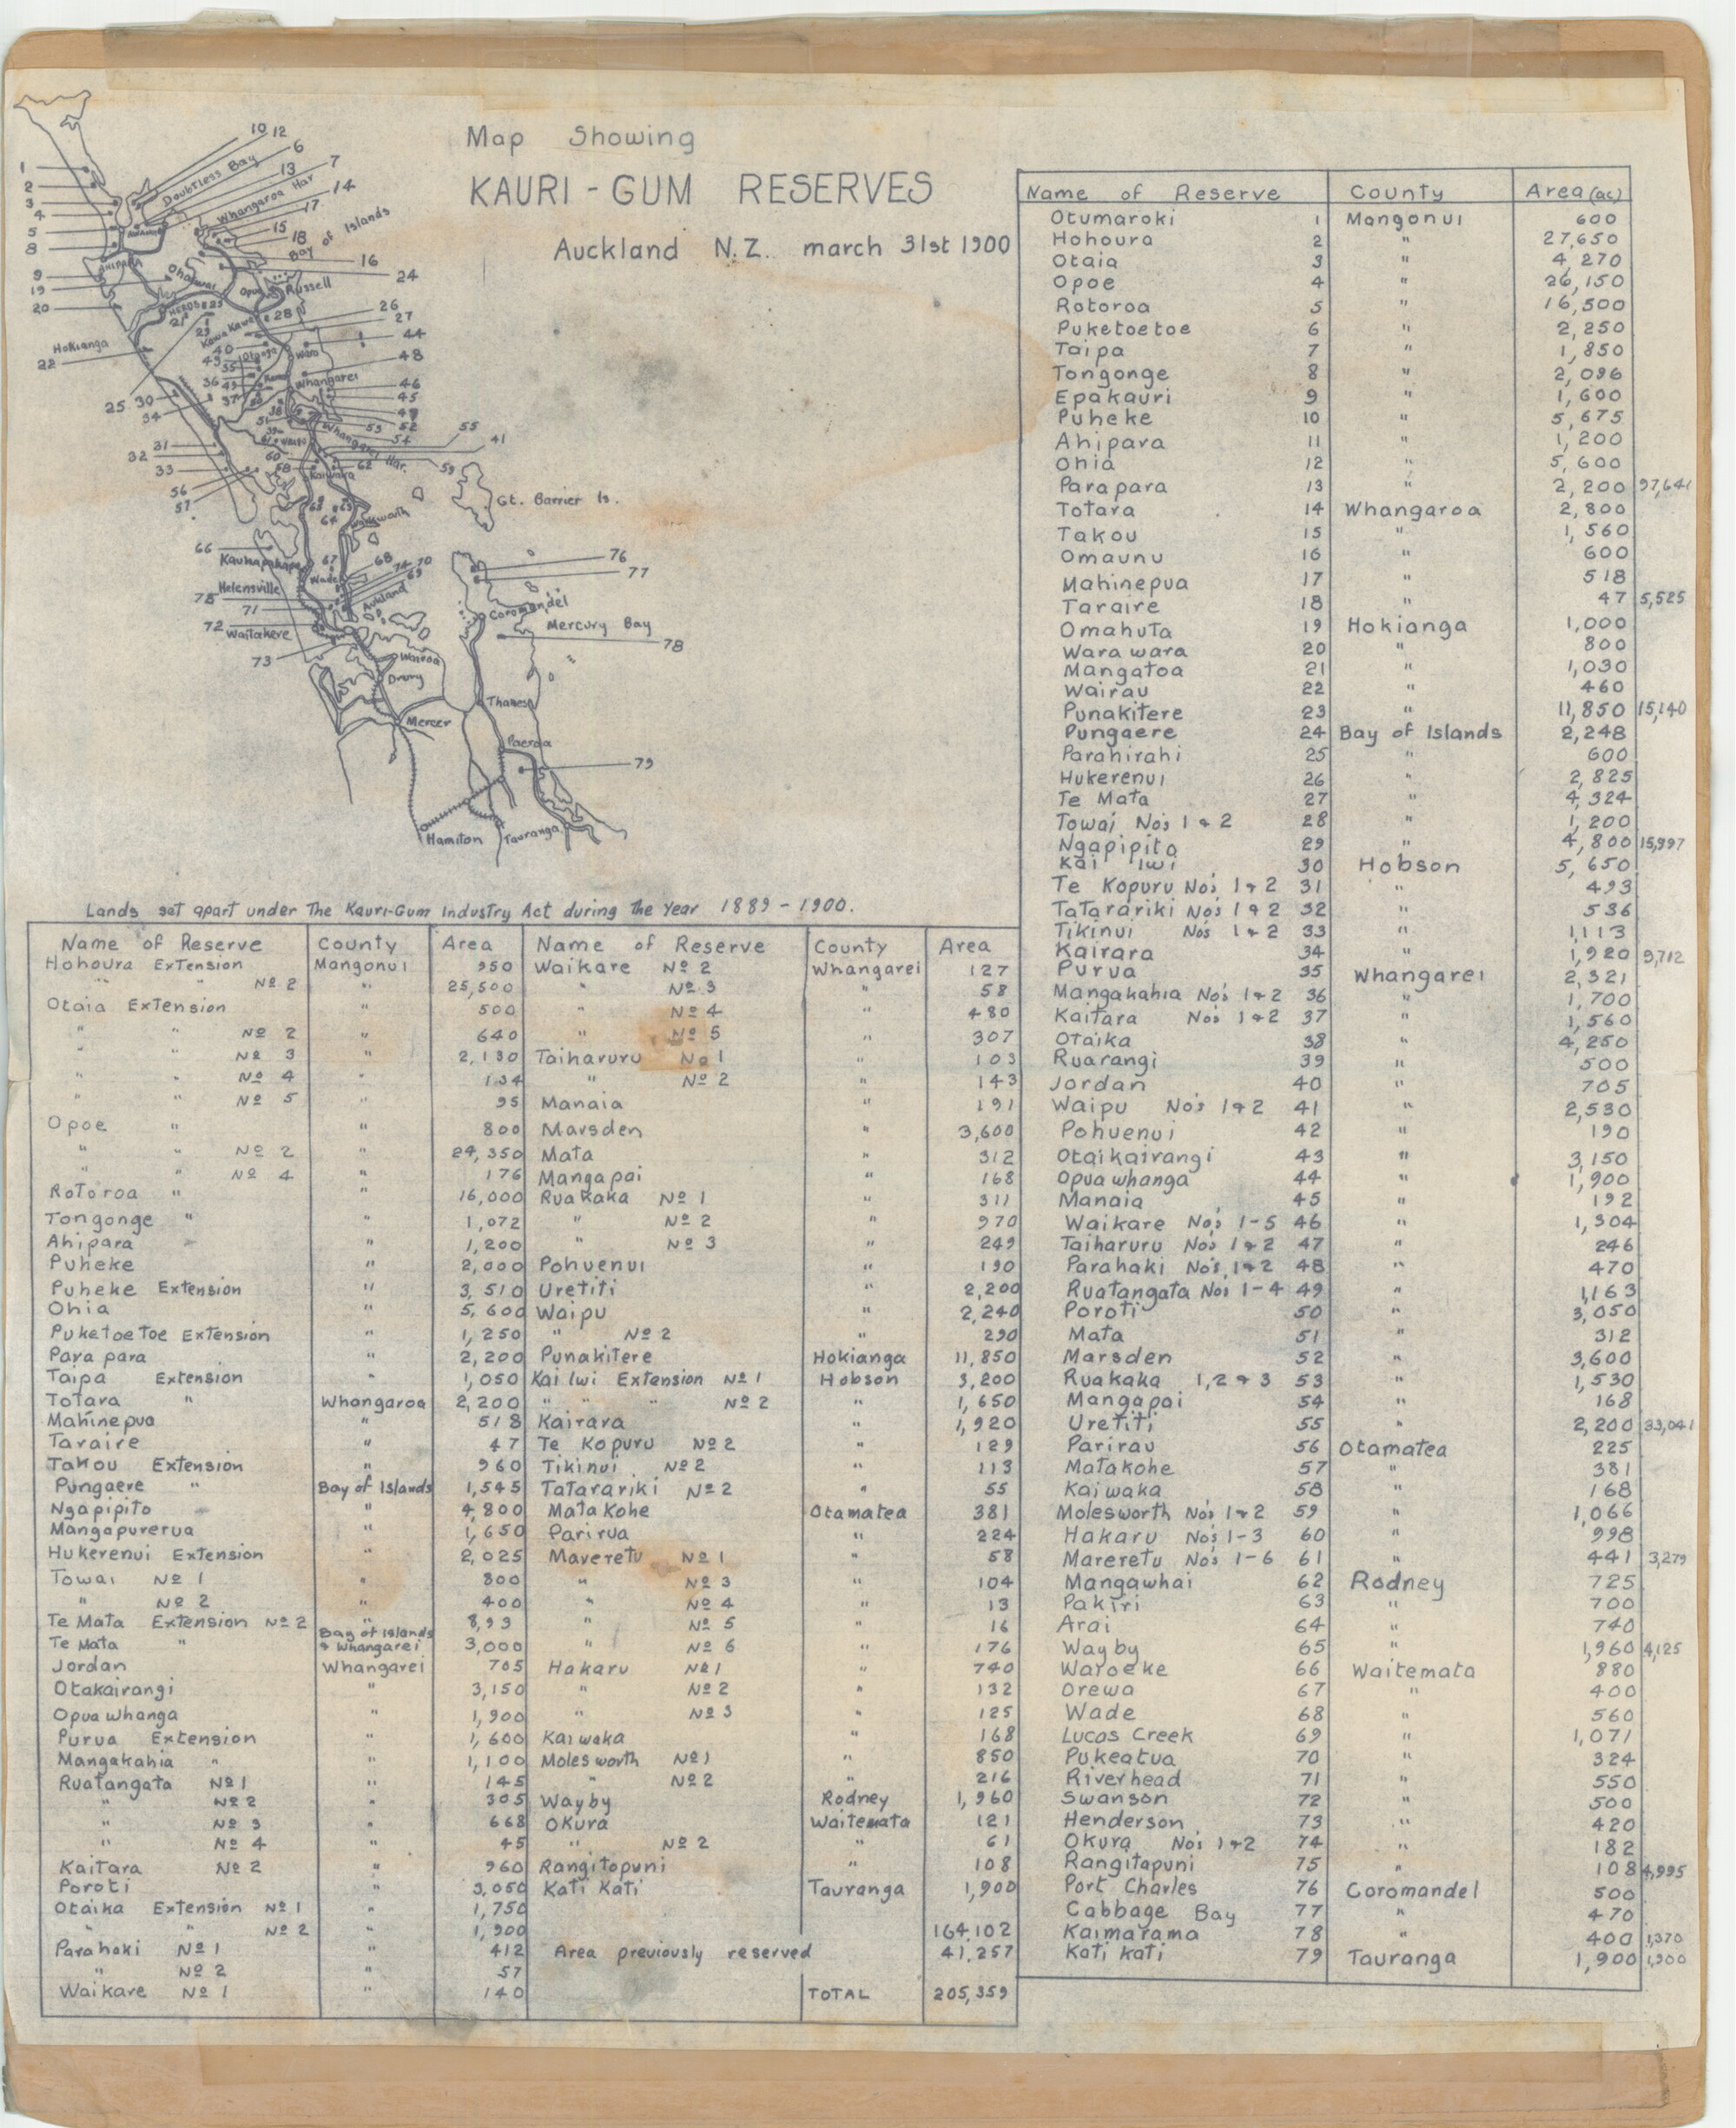 Map Showing
KAURI - GUM RESERVES
Auckland N.Z. march 31st 1900
10 12
6
Doubtless Bay
13 7
Whangaroa Har
14
17
15
18
Bay of Islands
16
24
1
2
3
4
5
8
AHIPARA
9
19
20
Ohaewai
Opua
Russell
26
27
28
Kawa Kawa
Hokianga
22
44
48
40
43
Whangarei
46
45
36
37
49
52
53
54
55
41
25 30
34
31
32
33
Whangarei Har.
59
60
62
56
57
Gt. Barrier Is.
64
66
67
68
70
69
Wade
Helensville
71
72
Waitakere
73
Auckland
76
77
Coromandel
Mercury Bay
78
Wairoa
Drury
Mercer
Thames
Paeroa
79
Hamilton
Tauranga
Name of Reserve County Area (ac)
Otumaroki 1 Mangonui 600
Hohoura 2 " 27,650
Otaia 3 " 4,270
Opoe 4 " 26,150
Rotoroa 5 " 16,500
Puketoetoe 6 " 2,250
Taipa 7 " 1,850
Tongonge 8 " 2,096
Epakauri 9 " 1,600
Puheke 10 " 5,675
Ahipara 11 " 1,200
Ohia 12 " 5,600
Parapara 13 " 2,200 97,641
Totara 14 Whangaroa 2,800
Takou 15 " 1,560
Omaunu 16 " 600
Mahinepua 17 " 518
Taraire 18 " 47 5,525
Omahuta 19 Hokianga 1,000
Wara wara 20 " 800
Mangatoa 21 " 1,030
Wairau 22 " 460
Punakitere 23 " 11,850 15,140
Pungaere 24 Bay of Islands 2,248
Parahirahi 25 600
Hukerenui 26 " 2,825
Te Mata 27 " 4,324
Towai No's 1 & 2 28 " 1,200
Ngapipito 29 " 4,800 15,997
Kai Iwi 30 Hobson 5,650
Te Kopuru No's 1 & 2 31 " 493
Tatarariki No's 1 & 2 32 " 536
Tikinui No's 1 & 2 33 " 1,113
Kairara 34 " 1,920 9,712
Purua 35 Whangarei 2,321
Mangakahia No's 1 & 2 36 " 1,700
Kaitara No's 1 & 2 37 " 1,560
Otaika 38 " 4,250
Ruarangi 39 " 500
Jordan 40 " 705
Waipu No's 1 & 2 41 " 2,530
Pohuenui 42 " 190
Otaikairangi 43 " 3,150
Opua whanga 44 " 1,900
Manaia 45 " 192
Waikare No's 1-5 46 " 1,304
Taiharuru No's 1 & 2 47 " 246
Parahaki No's 1 & 2 48 " 470
Ruatangata No's 1-4 49 " 1,163
Poroti 50 " 3,050
Mata 51 " 312
Marsden 52 " 3,600
Ruakaka 1,2 & 3 53 " 1,530
Mangapai 54 " 168
Uretiti 55 " 2,200 33,041
Parirau 56 Otamatea 225
Matakohe 57 " 381
Kaiwaka 58 " 168
Molesworth No's 1 & 2 59 " 1,066
Hakaru No's 1-3 60 " 998
Mareretu No's 1-6 61 " 441 3,279
Mangawhai 62 Rodney 725
Pakiri 63 " 700
Arai 64 " 740
Wayby 65 " 1,960 4,125
Waroeke 66 Waitemata 880
Orewa 67 " 400
Wade 68 " 560
Lucas Creek 69 " 1,071
Pukeatua 70 " 324
Riverhead 71 " 550
Swanson 72 " 500
Henderson 73 " 420
Okura No's 1 & 2 74 " 182
Rangitapuni 75 " 108 4,995
Port Charles 76 Coromandel 500
Cabbage Bay 77 " 470
Kaimarama 78 " 400 1,370
Kati kati 79 Tauranga 1,900 1,900
Lands set apart under The Kauri-Gum Industry Act during the Year 1889 - 1900.
Name of Reserve County Area Name of Reserve County Area
Hohoura Extension Mangonui 950 Waikare Nº 2 Whangarei 127
" " Nº 2 " 25,500 " Nº 3 " 58
Otaia Extension " 500 " Nº 4 " 480
" " Nº 2 " 640 " Nº 5 307
" " Nº 3 " 2,130 Taiharuru Nº 1 " 103
" " Nº 4 " 134 " Nº 2 " 143
" " Nº 5 " 95 Manaia " 191
Opoe " " 800 Marsden " 3,600
" " Nº 2 " 24,350 Mata " 312
" " Nº 4 " 176 Mangapai " 168
Rotoroa " " 16,000 Ruakaka Nº 1 " 311
Tongonge " " 1,072 " Nº 2 " 970
Ahipara " 1,200 " Nº 3 " 249
Puheke " 2,000 Pohuenui 190
Puheke Extension " 3,510 Uretiti " 2,200
Ohia " 5,600 Waipu " 2,240
Puketoetoe Extension " 1,250 " Nº 2 " 290
Para para " 2,200 Punakitere Hokianga 11,850
Taipa Extension " 1,050 Kai Iwi Extension Nº 1 Hobson 3,200
Totara " Whangaroa 2,200 " " " Nº 2 " 1,650
Mahinepua " 518 Kairara " 1,920
Taraire " 47 Te Kopuru Nº 2 " 129
Takou Extension " 960 Tikinui Nº 2 " 113
Pungaere " Bay of Islands 1,545 Tatarariki Nº 2 " 55
Ngapipito " 4,800 Mata Kohe Otamatea 381
Mangapurerua " 1,650 Parirua " 224
Hukerenui Extension " 2,025 Maveretu Nº 1 " 58
Towai Nº 1 " 800 " Nº 3 " 104
" Nº 2 " 400 " Nº 4 " 13
Te Mata Extension Nº 2 " 8,93 " Nº 5 16
Te Mata " Bay of Islands & Whangarei 3,000 " Nº 6 " 176
Jordan Whangarei 705 Hakaru Nº 1 " 740
Otakairangi " 3,150 " Nº 2 " 132
Opua whanga " 1,900 " Nº 3 125
Purua Extension 1,600 Kaiwaka " 168
Mangakahia " " 1,100 Molesworth Nº 1 " 850
Ruatangata Nº 1 " 145 " Nº 2 " 216
" Nº 2 " 305 Wayby Rodney 1,960
" Nº 3 " 668 Okura Waitemata 121
" Nº 4 " 45 " Nº 2 " 61
Kaitara Nº 2 " 960 Rangitopuni " 108
Poroti " 3,050 Kati Kati Tauranga 1,900
Otaika Extension Nº 1 " 1,750
" " Nº 2 " 1,900 164,102
Parahaki Nº 1 " 412 Area previously reserved 41,257
" Nº 2 " 57
Waikare Nº 1 " 140 TOTAL 205,359